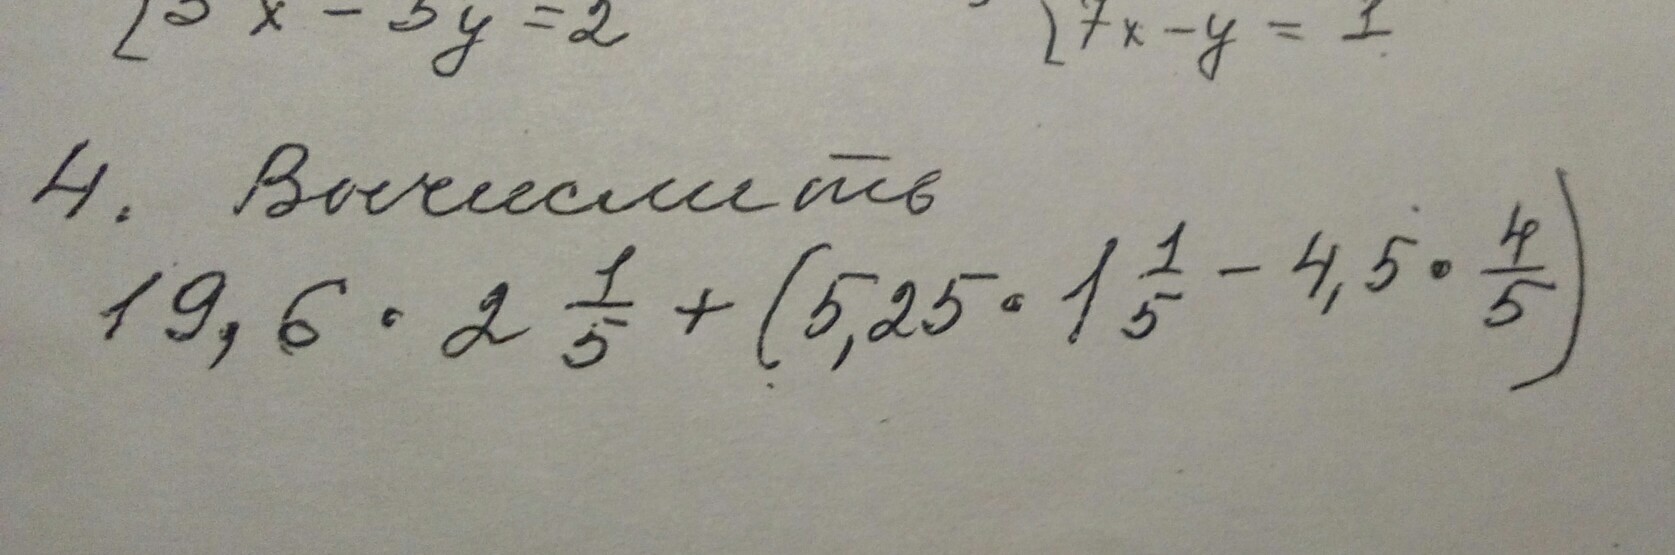 x - 3y = 2
7x - y = 1
4. Вычислить
19,6 · 2 1/5 + (5,25 · 1 1/5 - 4,5 · 4/5)